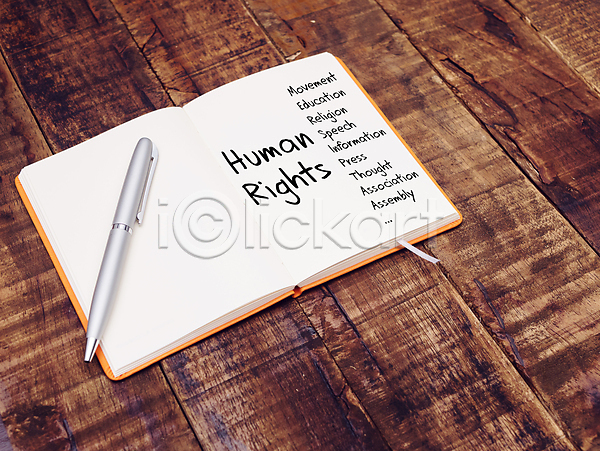 Human
Rights
Movement
Education
Religion
Speech
Information
Press
Thought
Association
Assembly
...
iclickart